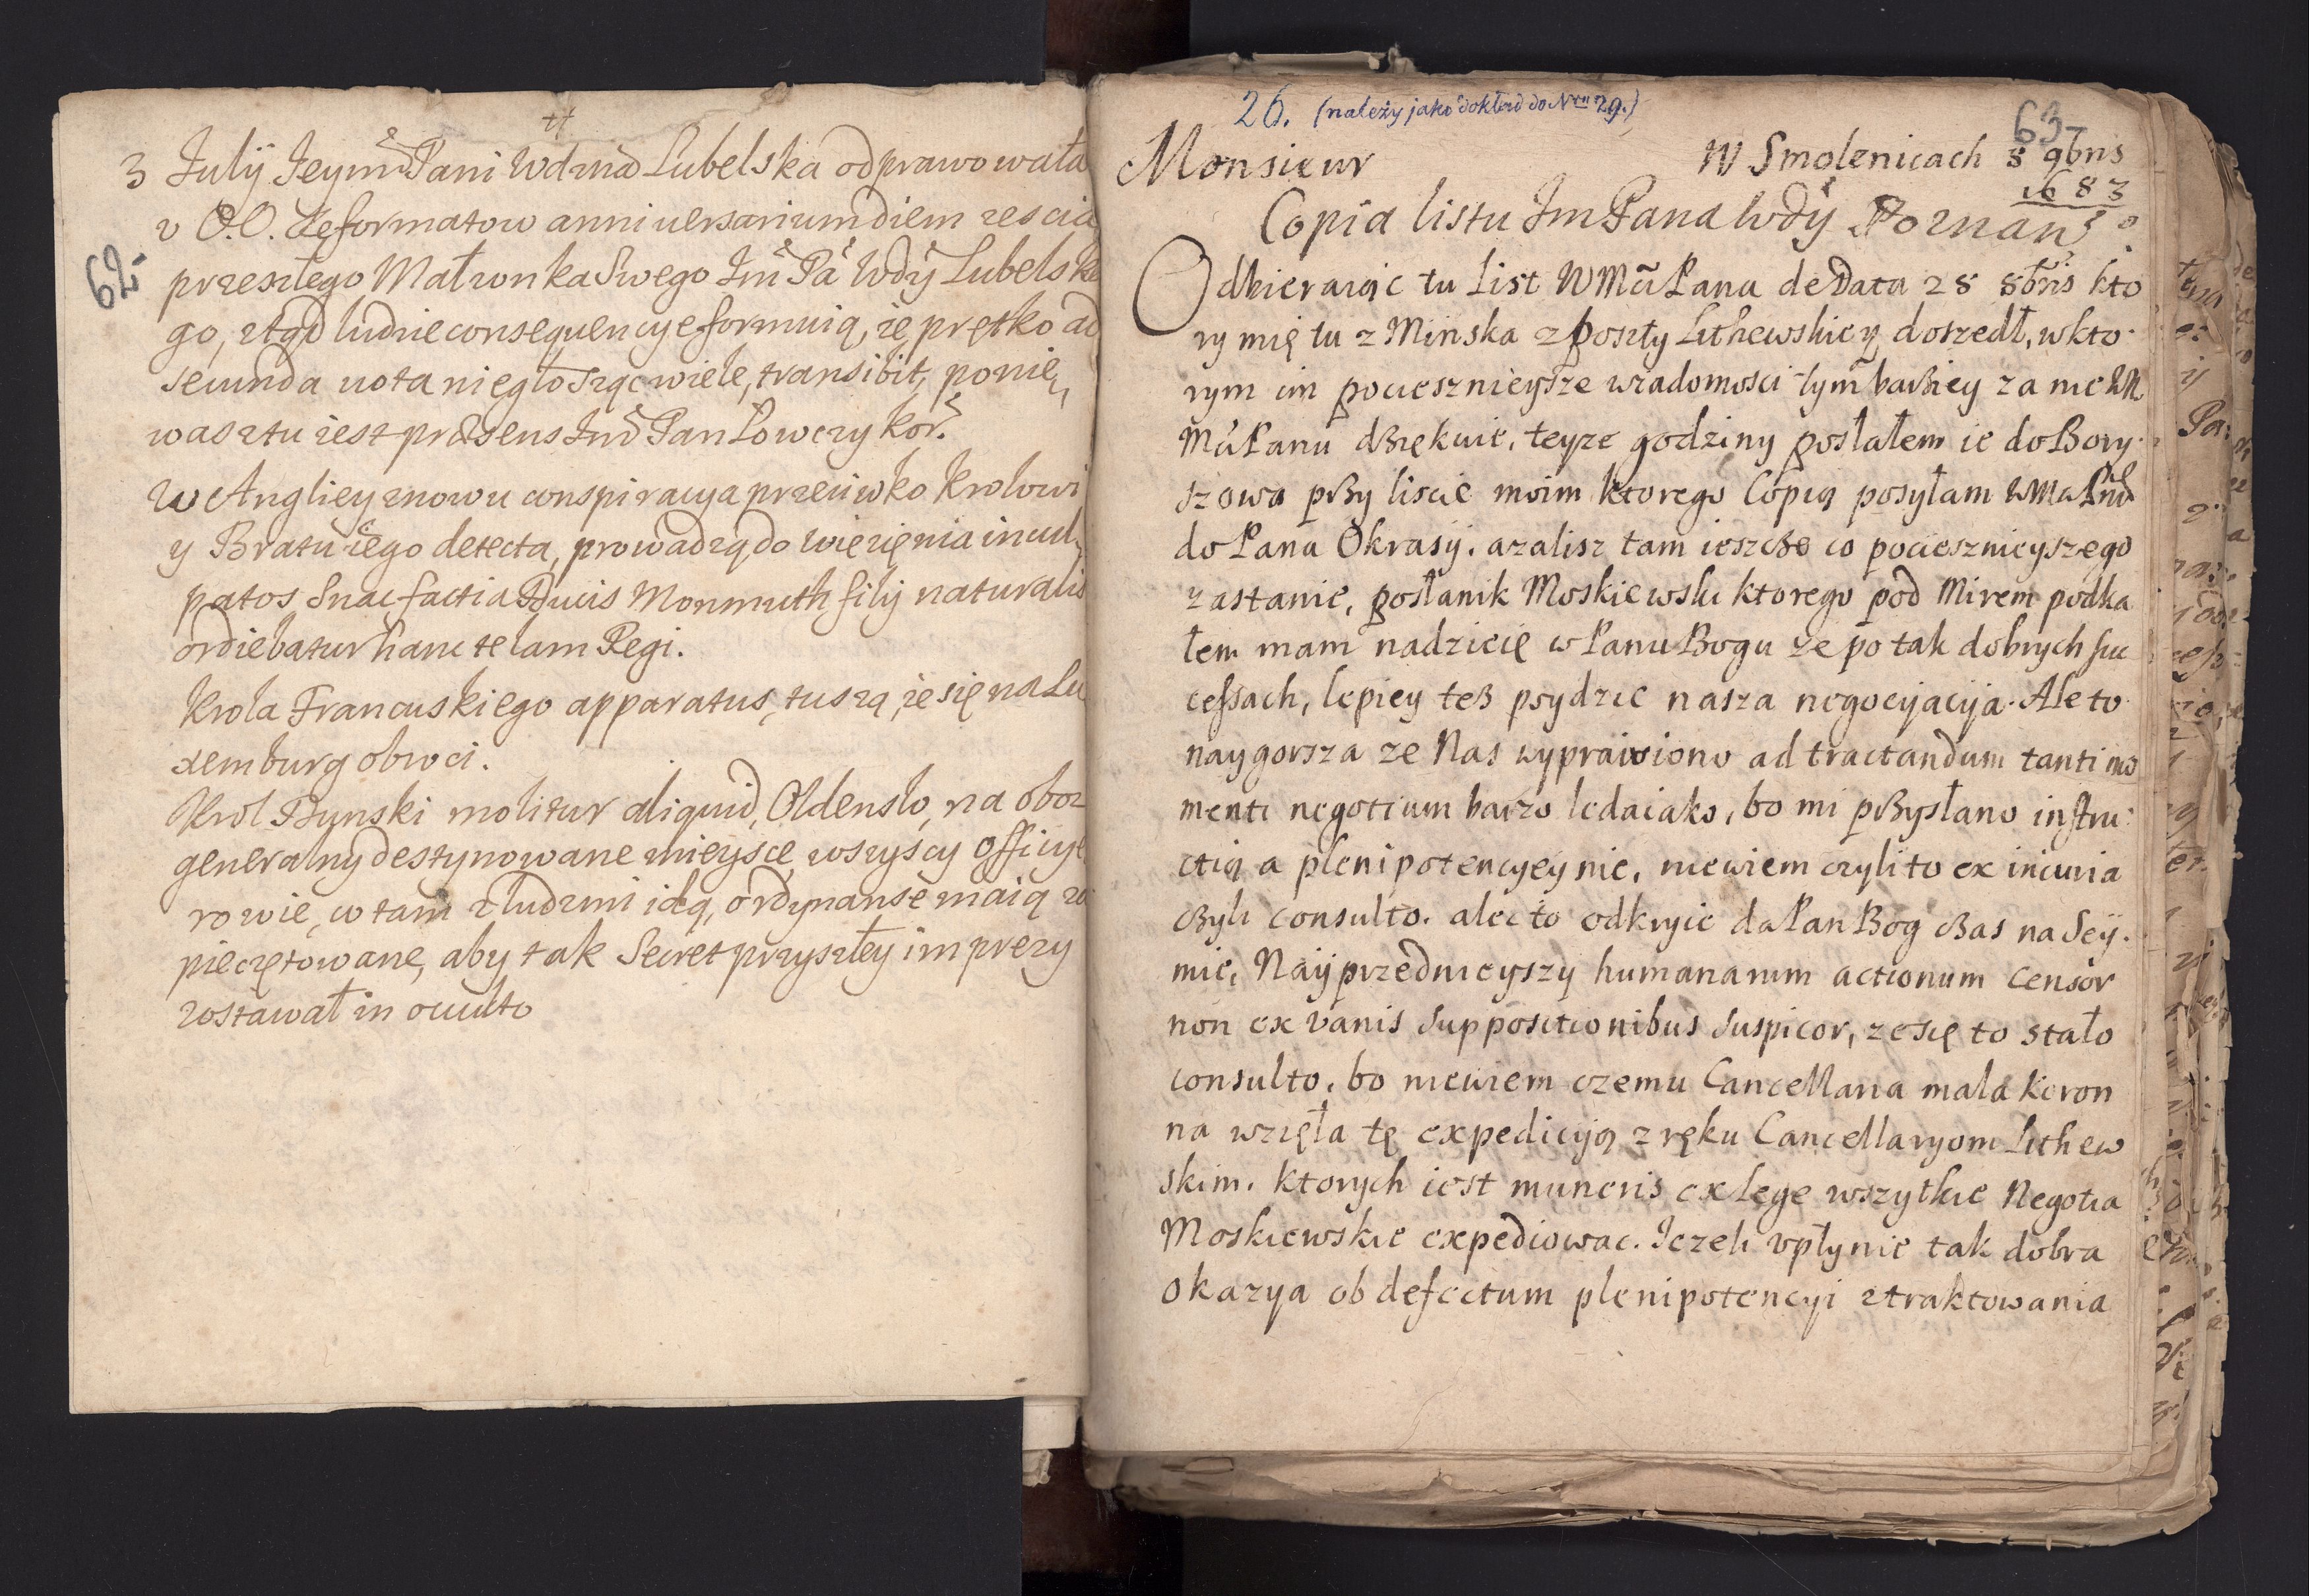 tt
3 July Jeym Pani Wdzina Lubelska odprawowała
v O.O. Reformatow anniversarium diem zescia
62.
przeszłego Małzonka Swego Jm Pa Wdy Lubelskie
go, ztąd ludzie consequencye formuią, ze prętko ad
secunda vota niegłosząc wiele, transibit, ponie
wasz tu iest præsens Jm Pan Łowczy Kor.
W Angliey znowu conspiracya przeciwko Krolowi
y Bratu iego detecta, prowadzą do więzięnia incul
patos, Snac factia Ducis Monmuth filij naturalis
ordiebatur hanc telam Regi.
Krola Francuskiego apparatus, tuszą, ze się na Lu
xemburg obroci.
Krol Dunski molitur aliquid, Oldenslo, na oboz
generalny destynowane mieysce, wszyscy Officye
rowie, co tam z ludzmi idą, ordynanse maią za
pieczętowane, aby tak Secret przyszłey imprezy
zostawał in occulto
26. (należy jako dokład do Nru 29.)
63
Monsieur W Smolenicach 8 9bris
1683
Copia listu Jm Pana Wdy Poznan
Odbieraiąc tu List WMa Pana de Data 28 8bris kto
ry mię tu z Minska z poszty Lithewskiey doszedł, w kto
rym im pociesznieysze wiadomosci tym barziey za nie WM
Ma Panu dziękuie, teyze godziny posłałem ie do Bory
szowa przy liscie moim ktorego Copią posyłam WMa Pnu
do Pana Okrasy. azalisz tam ieszcze co pociesznieyszego
zastanie, posłanik Moskiewski ktorego pod Mirem podka
łem mam nadzieię w Panu Bogu ze po tak dobrych suc
cessach, lepiey tesz psydzie nasza negocyacyja. Ale to
naygorsza ze Nas wyprawiono ad tractandum tanti mo
menti negotium barzo ledaiako, bo mi przysłano instru
ctią a plenipotencyey nie, niewiem czyli to ex incuria
czyli consulto. alec to odkryie da Pan Bog czas na Sey
mie, Nayprzednieyszy humanarum actionum censor
non ex vanis suppositionibus suspicor, ze się to stało
consulto, bo niewiem czemu Cancellaria mala Koron
na wzięła tę expedicyją z ręku Cancellaryom Lithew
skim. ktorych iest muneris ex Lege wszytkie Negotia
Moskiewskie expediowac. Jezeli vpłynie tak dobra
okazya ob defectum plenipotencyi ztraktowania